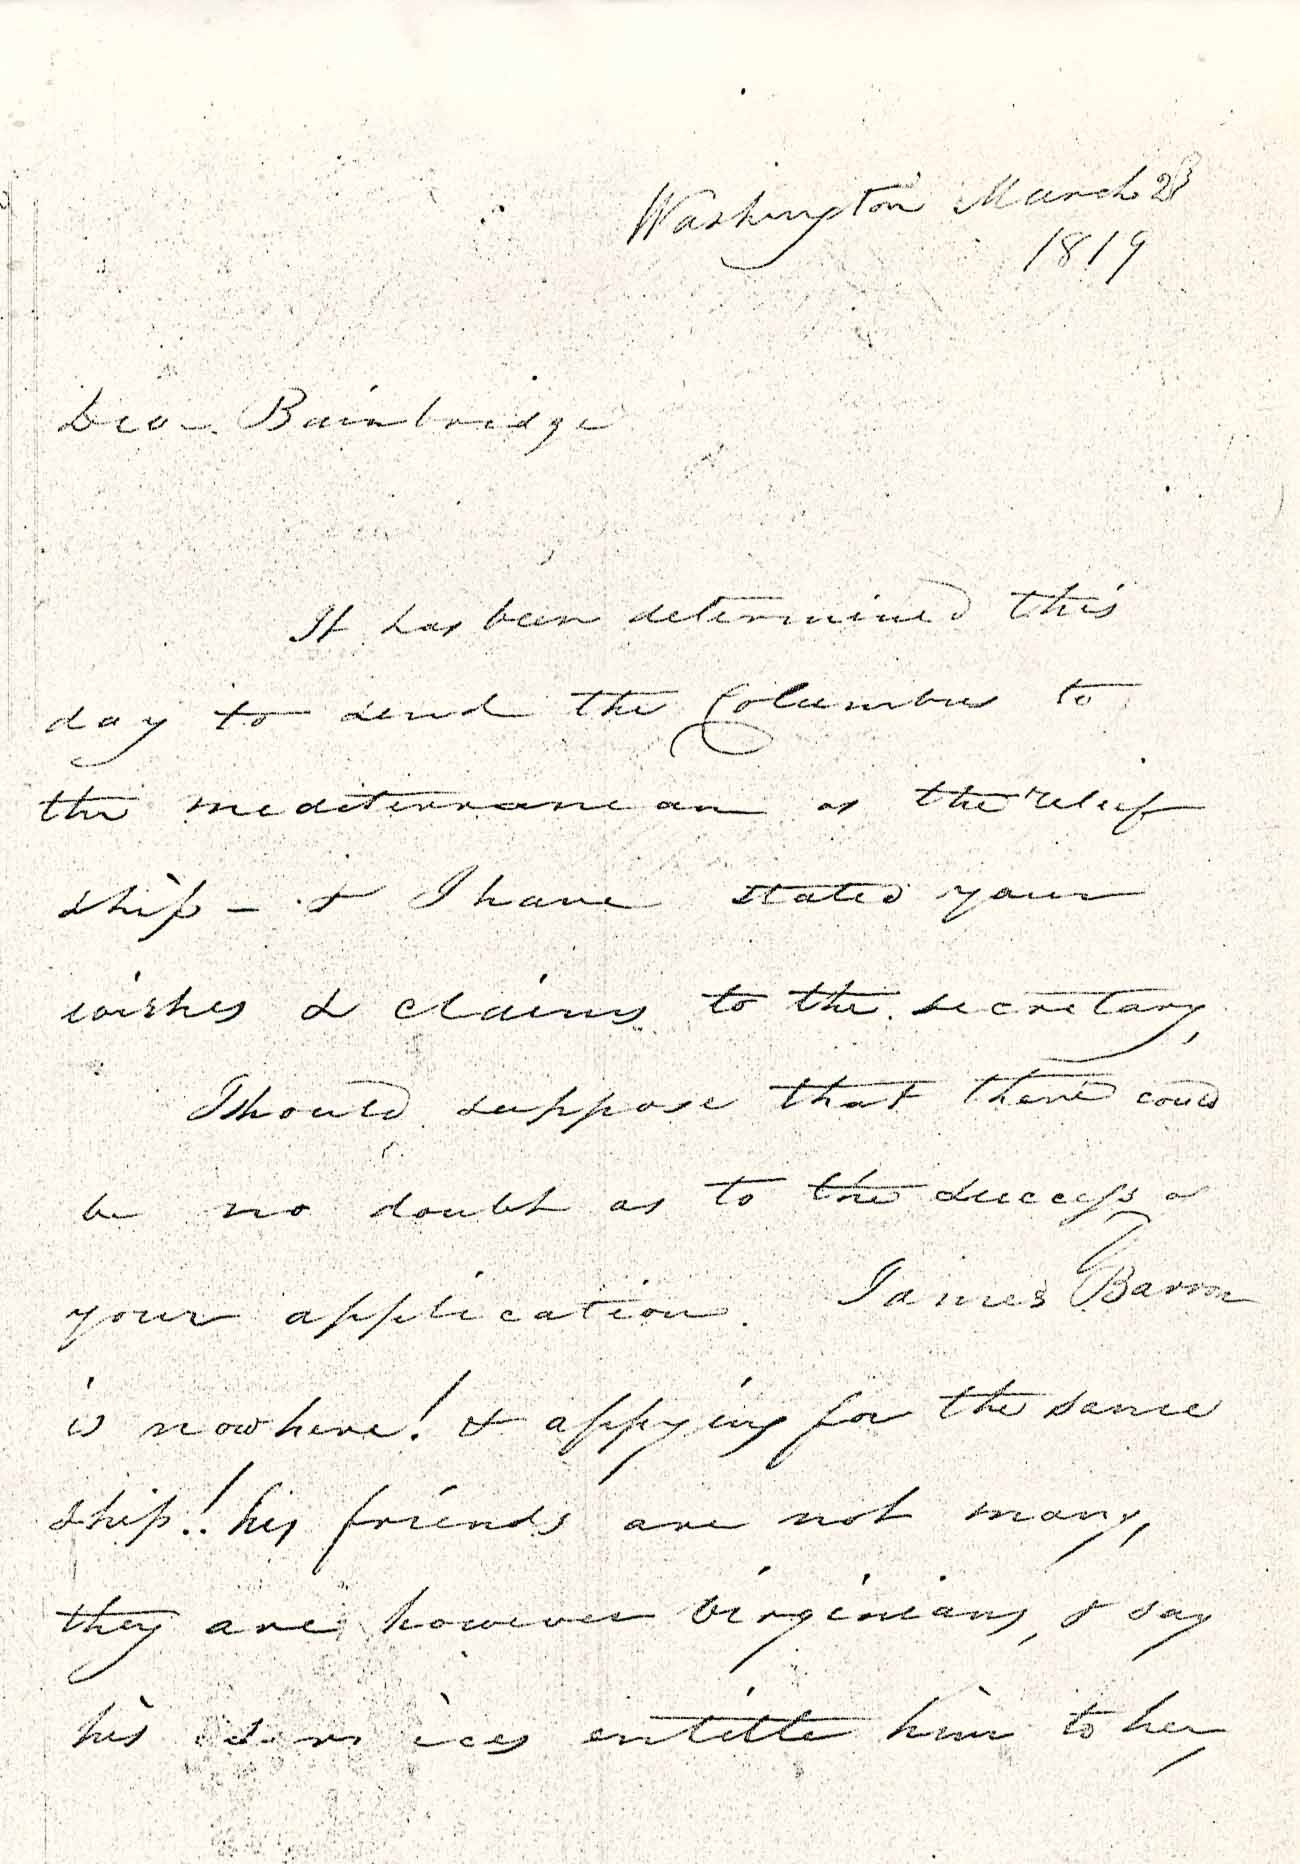 Washington March 23
1819
Dear Bainbridge
It has been determined this
day to send the Columbus to
the mediterranean as the relief
ship – & I have stated your
wishes & claims to the secretary,
I should suppose that there could
be no doubt as to the success of
your application. James Barron
is now here! & appying for the same
ship!! his friends are not many,
they are however virginians, & say
his services entitle him to her,